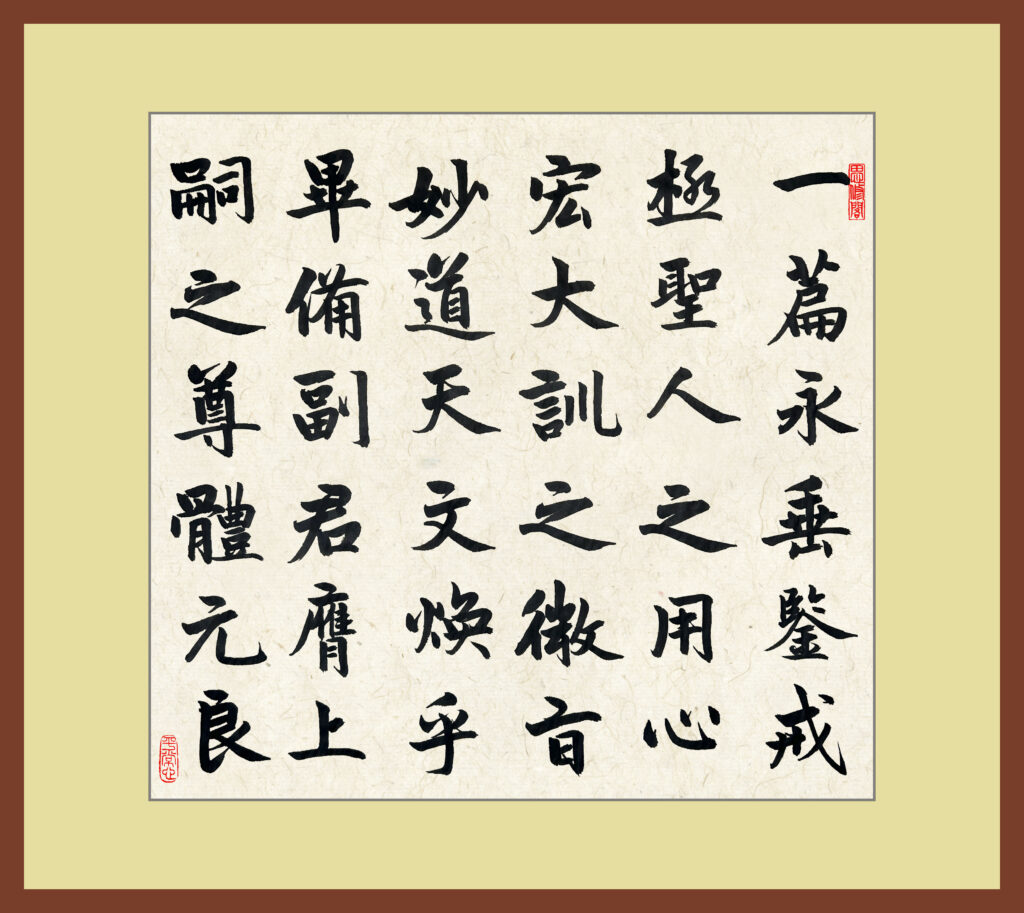 一篇永垂鑒戒
極聖人之用心
宏大訓之微旨
妙道天文煥乎
畢備副君膺上
嗣之尊體元良
平常心